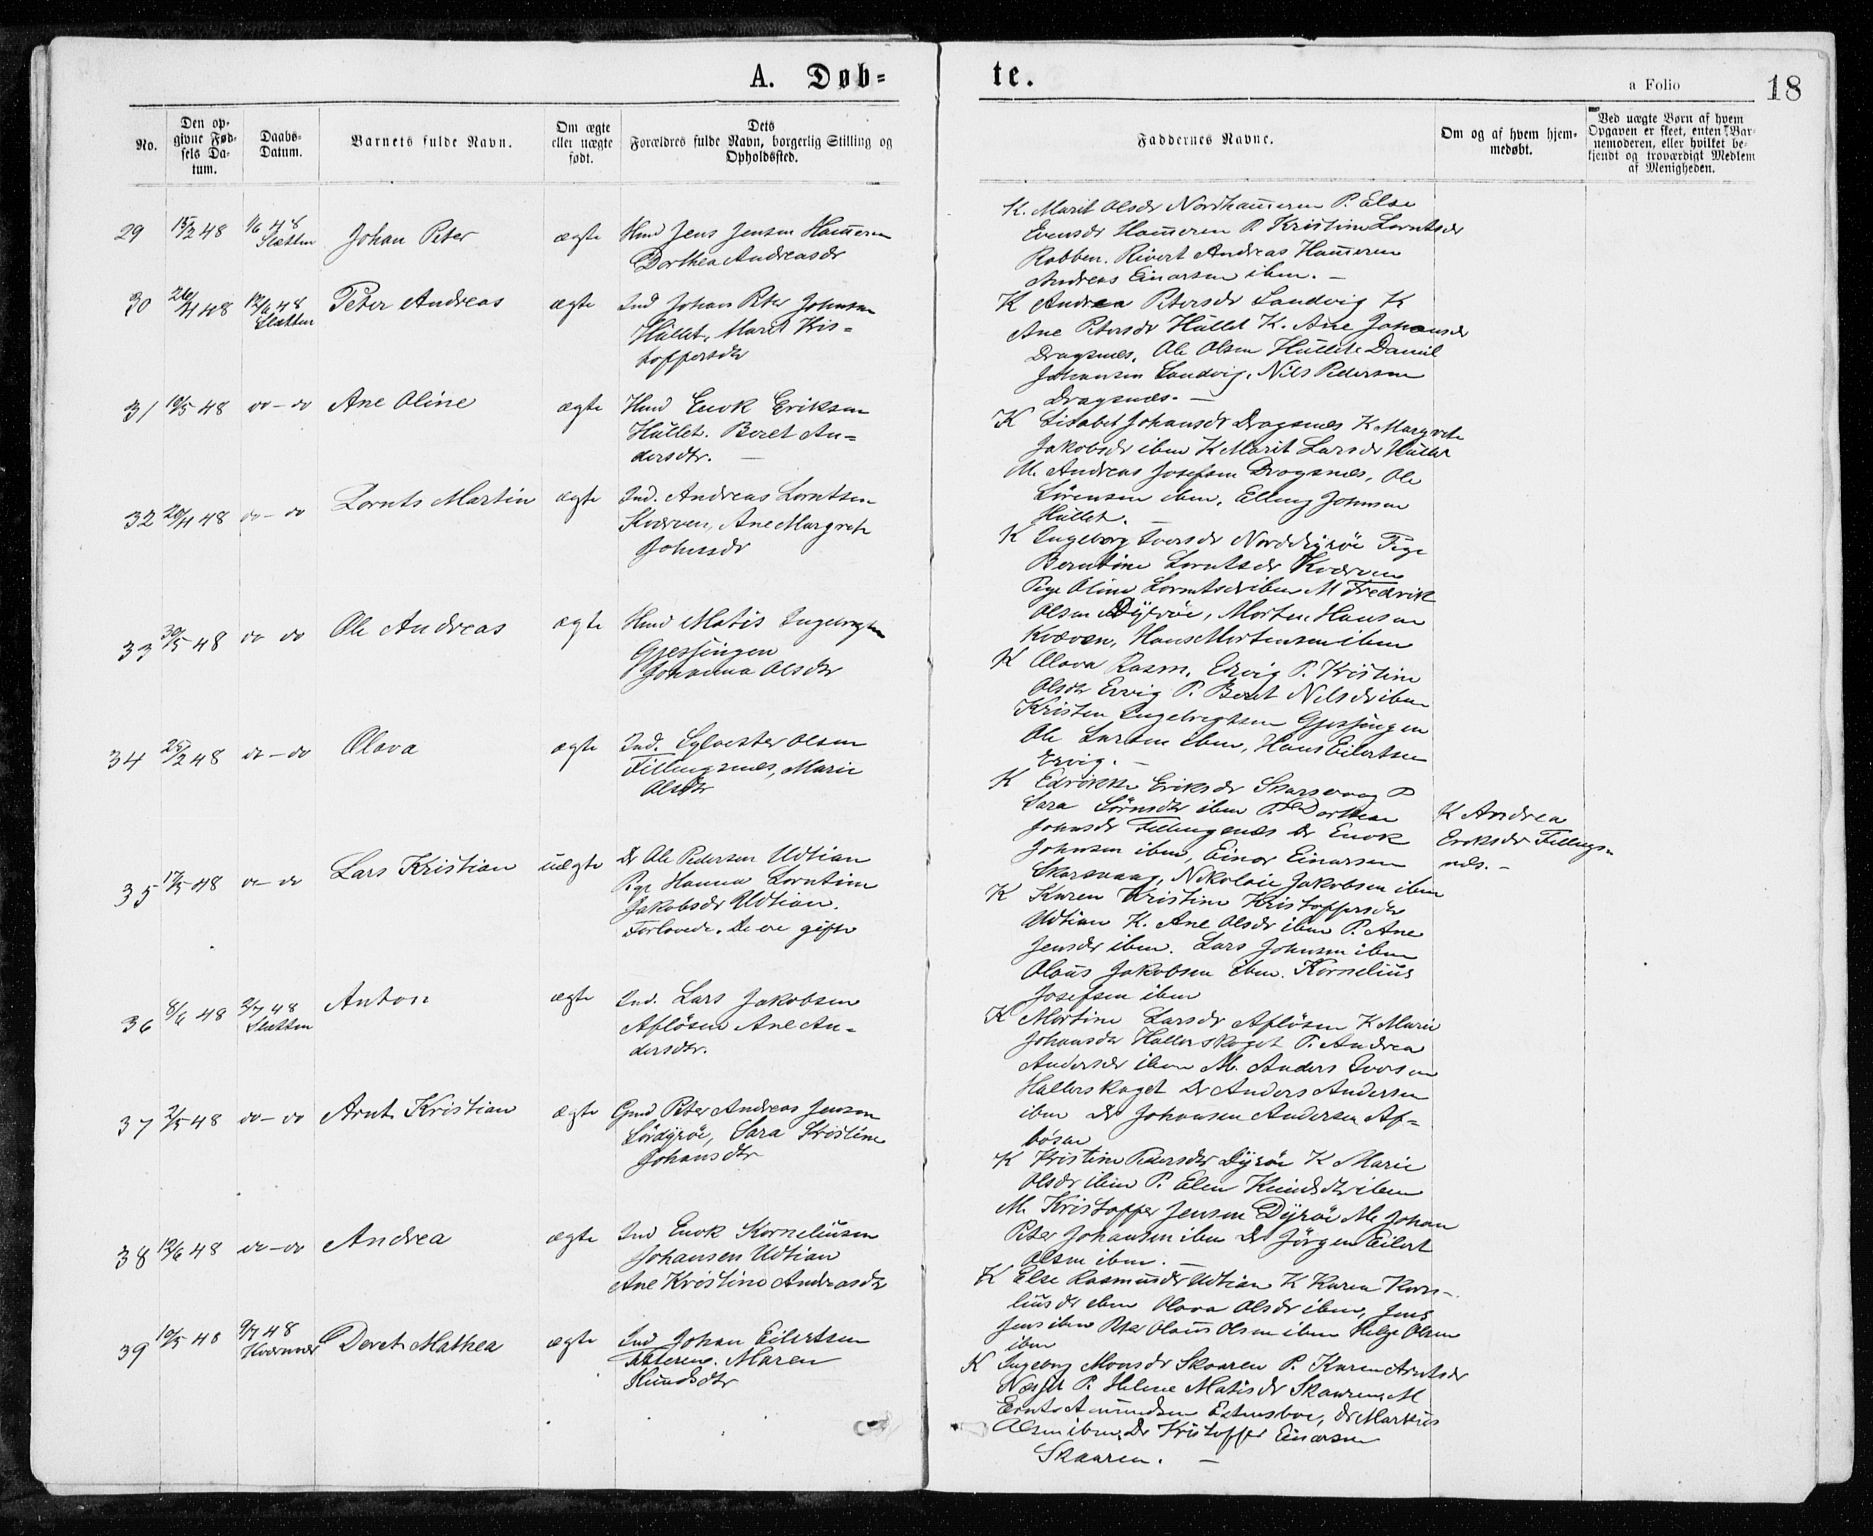 A. Døb-
te.
a Folio
18
No.
Den op-
givne Fød-
sels Da-
tum.
Daabs-
Datum.
Barnets fulde Navn.
Om ægte
eller uægte
født.
Dets
Forældres fulde Navn, borgerlig Stilling og
Opholdssted.
Faddernes Navne.
Om og af hvem hjem-
medøbt.
Ved uægte Børn af hvem
Opgaven er skeet, enten Bar-
nemoderen, eller hvilket be-
kjendt og troværdigt Medlem
af Menigheden.
29 15/2 48 1/6 48 Johan Peter ægte Hmd Jens Jensen Ham̄eren
Sletten
Dorthea Andreasdr
K. Marit Olsdr Nordham̄eren P. Else
Evensdr Ham̄eren P. Kristine Lorntsdr
Robben. Sivert Andreas Ham̄eren
Andreas Einarsen ibm. —
30 26/4 48 12/6 48 Peter Andreas ægte Ind Johan Peter Johnsen
Sletten
Hüllet, Marit Kris-
toffersdtr
K Andrea Petersdr Sandvig K
Ane Petersdr Hüllet K. Ane Johansdr
Dragsnes, Ole Olsen Hüllet Daniel
Johansen Sandvig, Nils Pedersen
Dragsnes. —
31 10/5 48 do - do Ane Oline ægte Hmd Enok Eriksen
Hüllet. Beret An=
dersdtr. —
K Lisabet Johansdr Dragsnes K Margrete
Jakobsdr ibm K Marit Larsdr Hüllet
M. Andreas Josefsen Dragsnes, Ole
Sörensen ibm, Elling Johnsen
Hüllet. —
32 20/4 48 do - do Lornts Martin ægte Ind. Andreas Lorntsen
Kværven, Ane Margrete
Johnsdr
K Ingeborg Iversdr Norddyröe Pige
Berntine Lorntsdr Kværven
Pige Oline Lorntsdr ibm M Fredrik
Olsen Dyröe, Morten Hansen
Kværven, Hans Mortensen ibm
33 30/5 48 do do Ole Andreas ægte Hmd Matis Ingebrigtsen
Gjessingen
Johanna Olsdtr
K Olava Rasm. Ervig P. Kristine
Olsdtr Ervig P. Beret Nilsdr ibm
Kristen Ingebrigtsen Gjessingen
Ole Larsen ibm, Hans Eilertsen
Ervig. —
34 25/2 48 do - do Olava ægte Ind. Sylvester Olsen
Fillingsnes, Marie
Olsdtr
K Eriksdr Skarsvaag P
Sara Sörnsdtr ibm P. Dorthea
Johnsdr Fillingsnes Dr Enok
Johnsen ibm, Einar Einarsen
Skarsvaag, Nikolai Jakobsen ibm
K Andrea
Eriksdr Fillings-
nes. —
35 17/5 48 do - do Lars Kristian uægte Dr Ole Pedersen Udtian
Pige Hanna Lorntine
Jakobsdr Udtian.
Forlovede. De ere gifte
K Karen Kristine Kristoffersdtr
Udtian K. Ane Olsdr ibm P. Ane
Jensdr ibm. Lars Johnsen ibm
Olaus Jakobsen ibm. Kornelius
Josefsen ibm
36 8/6 48 2/7 48 Anton ægte Ind. Lars Jakobsen
Sletten
Aflösen Ane An=
dersdtr.
K Martine Larsdr Aflösen K Marie
Johansdr Hallerskaget P. Andrea
Andersdr ibm M. Anders Iversen
Hallerskaget Dr Anders Andersen
ibm Dr Johansen Andersen Af=
lösen
37 2/5 48 do - do Arnt Kristian ægte Gmd Peter Andreas Jensen
Sördyröe, Sara Kristine
Johansdtr
K Kristine Pedersdtr Dyröe K Marie
Olsdr ibm P. Elen Knudsdtr ibm
M. Kristoffer Jensen Dyröe M. Johan
Peter Johansen ibm Dr Jörgen Eilert
Olsen ibm. —
38 12/6 48 do - do Andrea ægte Ind Enok Korneliusen
Johansen Udtian
Ane Kristine Andreasdtr
K Else Rasmusdr Udtian K Karen Korne-
liusdr ibm Olava Olsdr ibm, Jens
Jens ibm Peter Olaus Olsen ibm Helge Olsen
ibm
39 10/5 48 9/7 48 Beret Mathea ægte Ind Johan Eilertsen
Kværnnæs
Maren
Knudsdtr
K Ingeborg Monsdr Skaaren P. Karen Arntsdr
Næsset P. Helene Matisdr Skaaren, M
Arnts Amundsen Dr Markus
Olsen ibm, Dr Kristoffer Einarsen
Skaaren. —